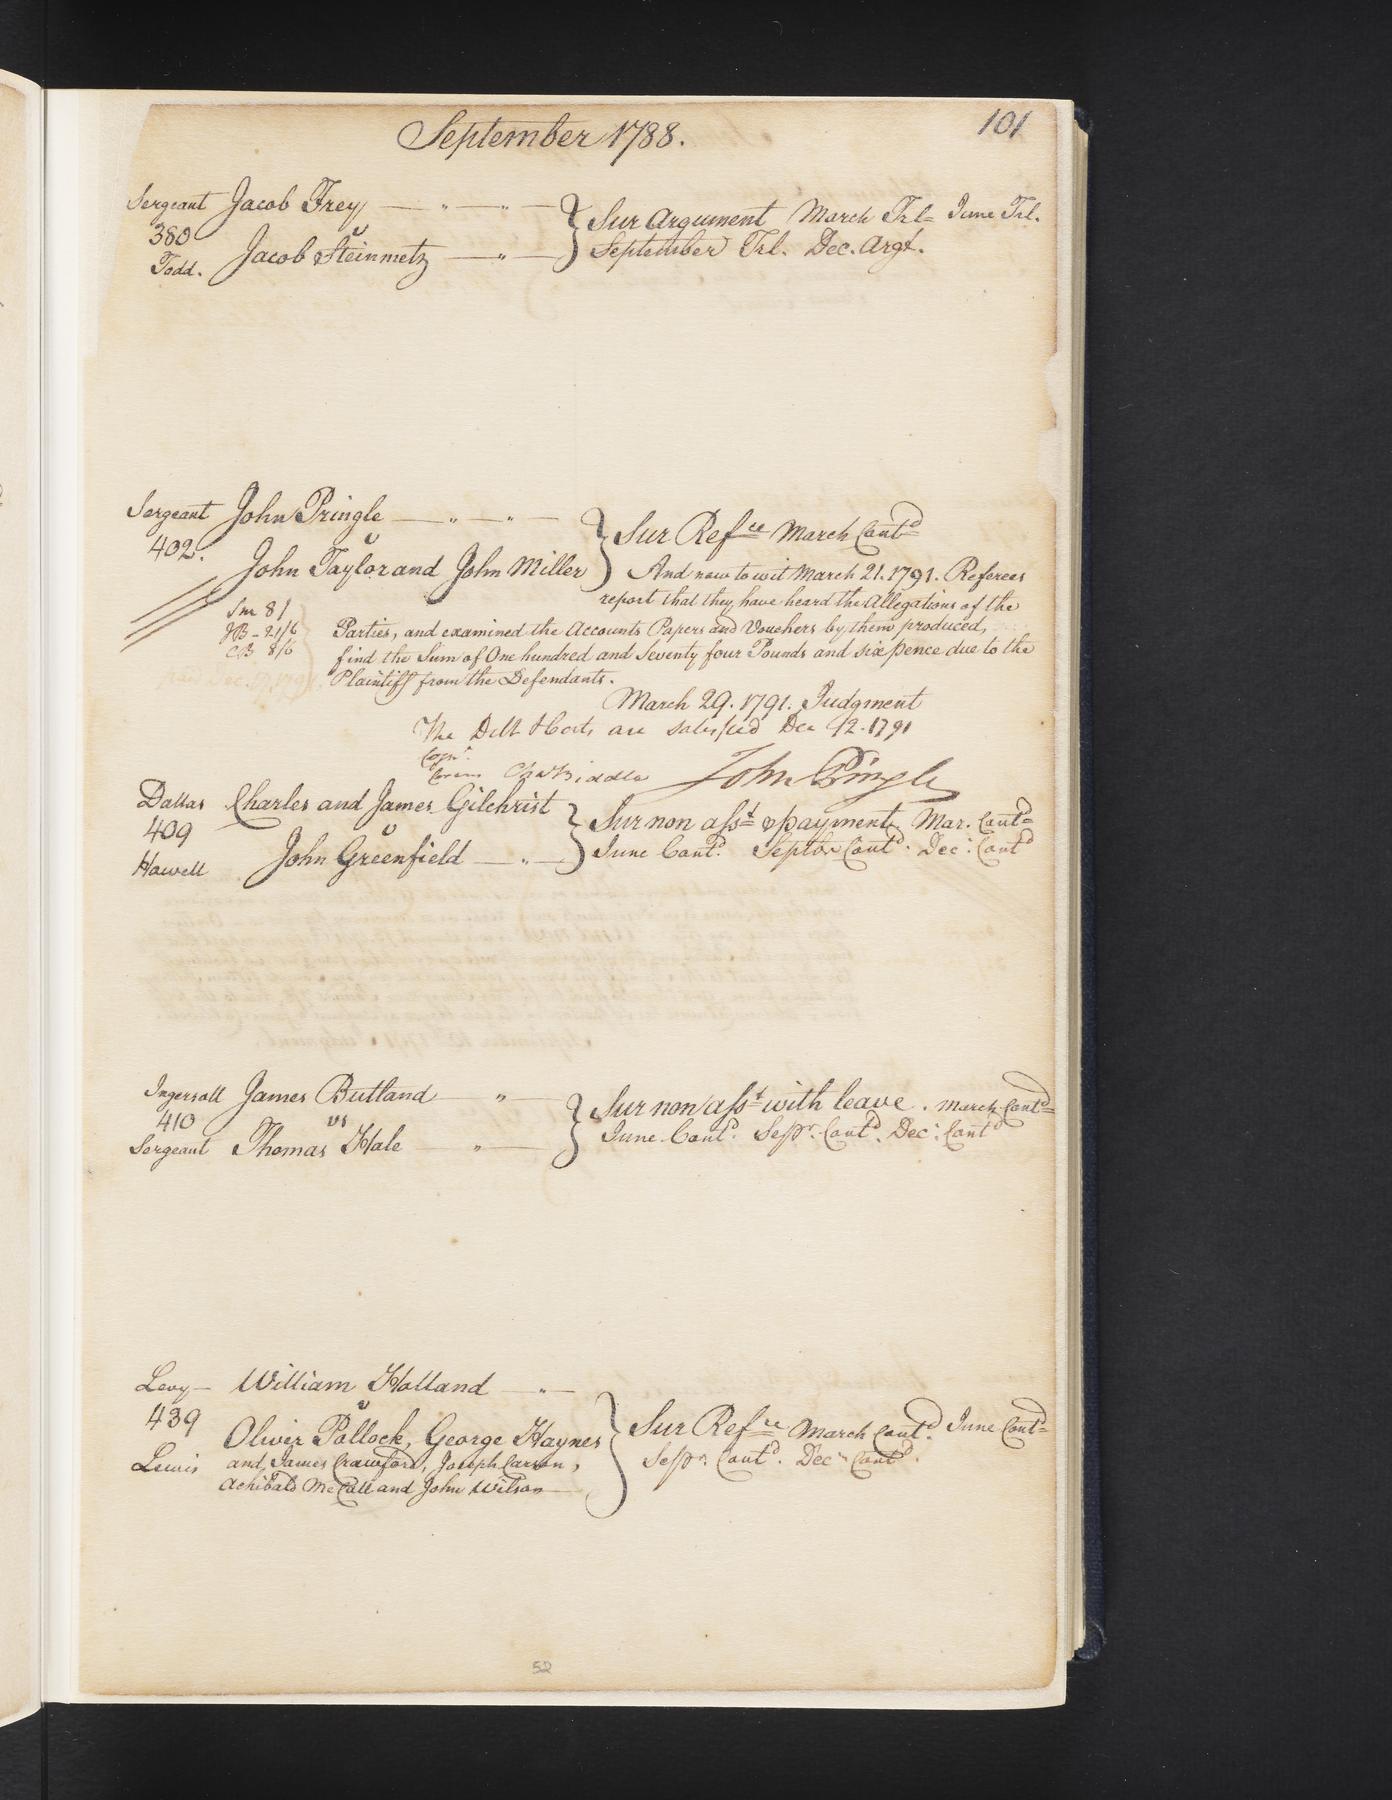 September 1788.
101
Sergeant Jacob Frey
380 v
Todd. Jacob Steinmetz
Sur Argument March Trl June Trl.
September Trl. Dec. Argt.
Sergeant John Pringle
402. v
John Taylor and John Miller
Sur Refce March Contd
And now to wit March 21. 1791. Referees
report that they have heard the Allegations of the
Sm 8/
JB - 21/6
CB 8/6
Parties, and examined the Accounts Papers and Vouchers by them produced,
find the Sum of One hundred and seventy four Pounds and six pence due to the
Plaintiff from the Defendants.
March 29. 1791. Judgment
The Debt & Costs are satisfied Dec 12. 1791
Coram Chas Biddle John Pringle
Dallas Charles and James Gilchrist
409 v
Howell John Greenfield
Sur non asst & payment. Mar. Contd
June Contd. Septbr Contd. Dec: Contd
Ingersoll James Butland
410 vs
Sergeant Thomas Hale
Sur non asst with leave. March Contd
June Contd. Sepr. Contd. Dec: Contd
Levy William Holland
439 v
Lewis Oliver Pollock, George Haynes
and James Crawford, Joseph Carson,
Achibald McCall and John Wilson
Sur Refce March Contd. June Contd
Sepr. Contd. Decr Contd.
52